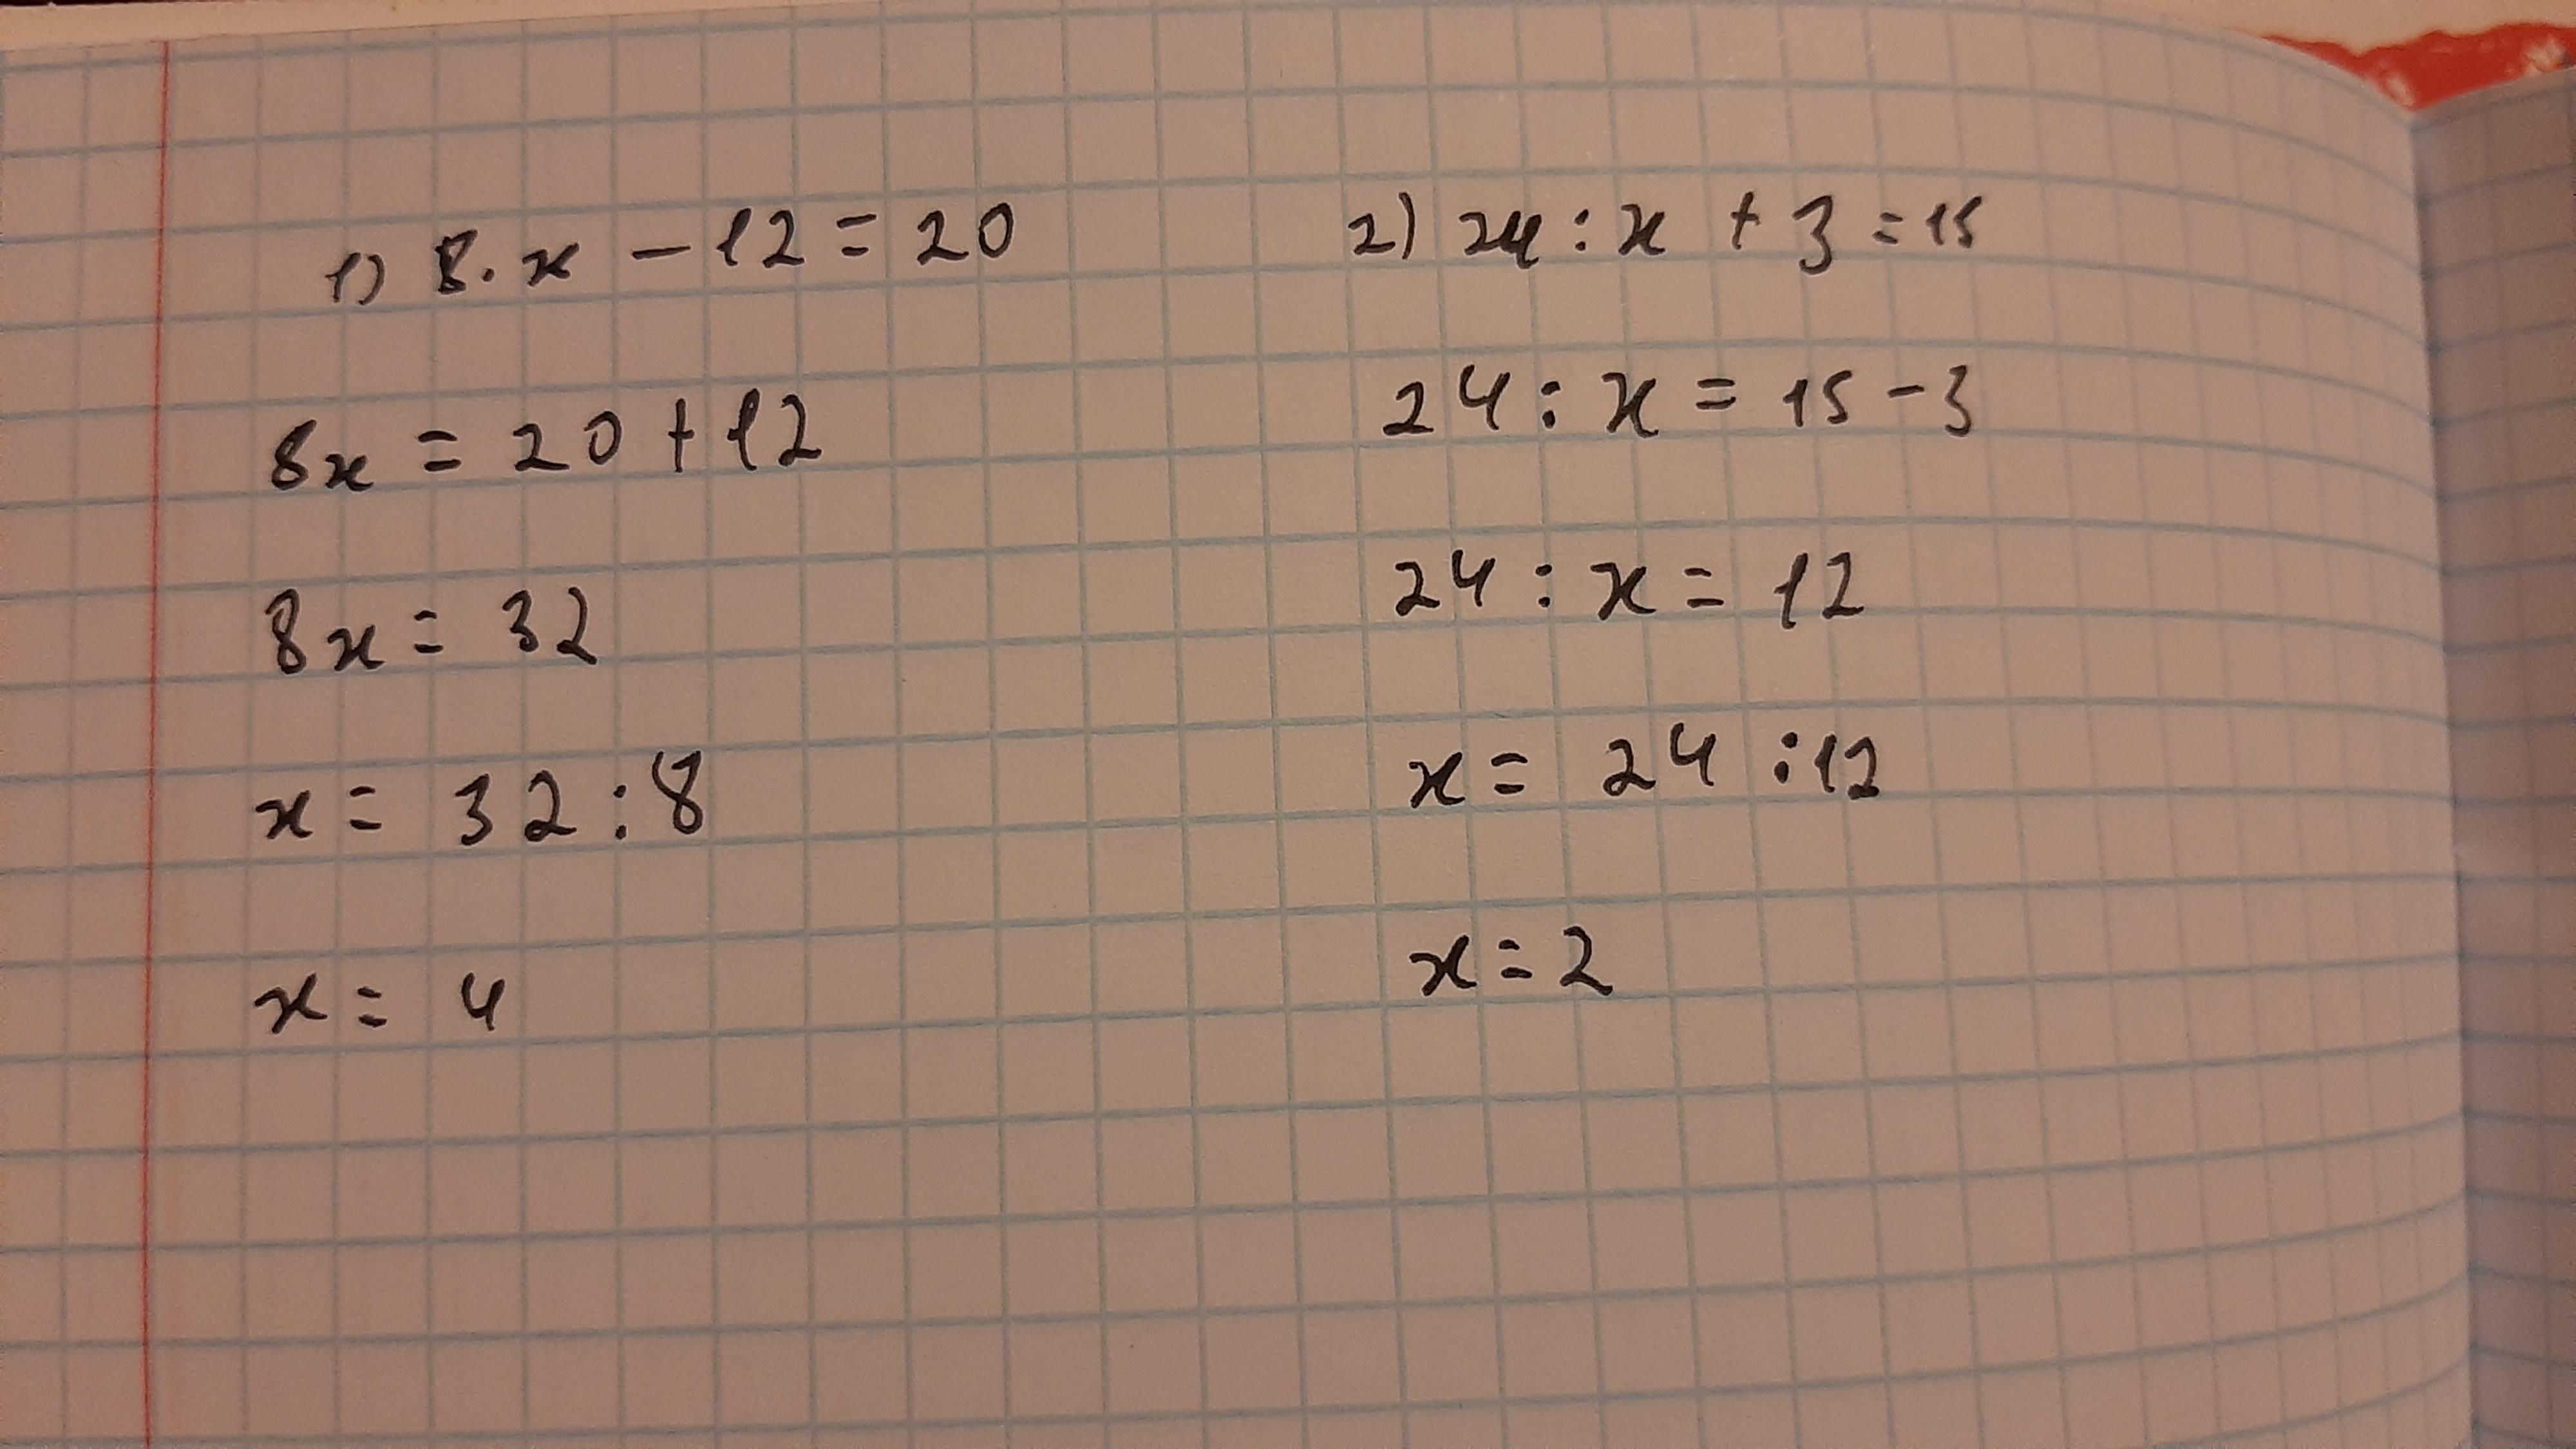 1) 8 · x - 12 = 20
8x = 20 + 12
8x = 32
x = 32 : 8
x = 4
2) 24 : x + 3 = 15
24 : x = 15 - 3
24 : x = 12
x = 24 : 12
x = 2